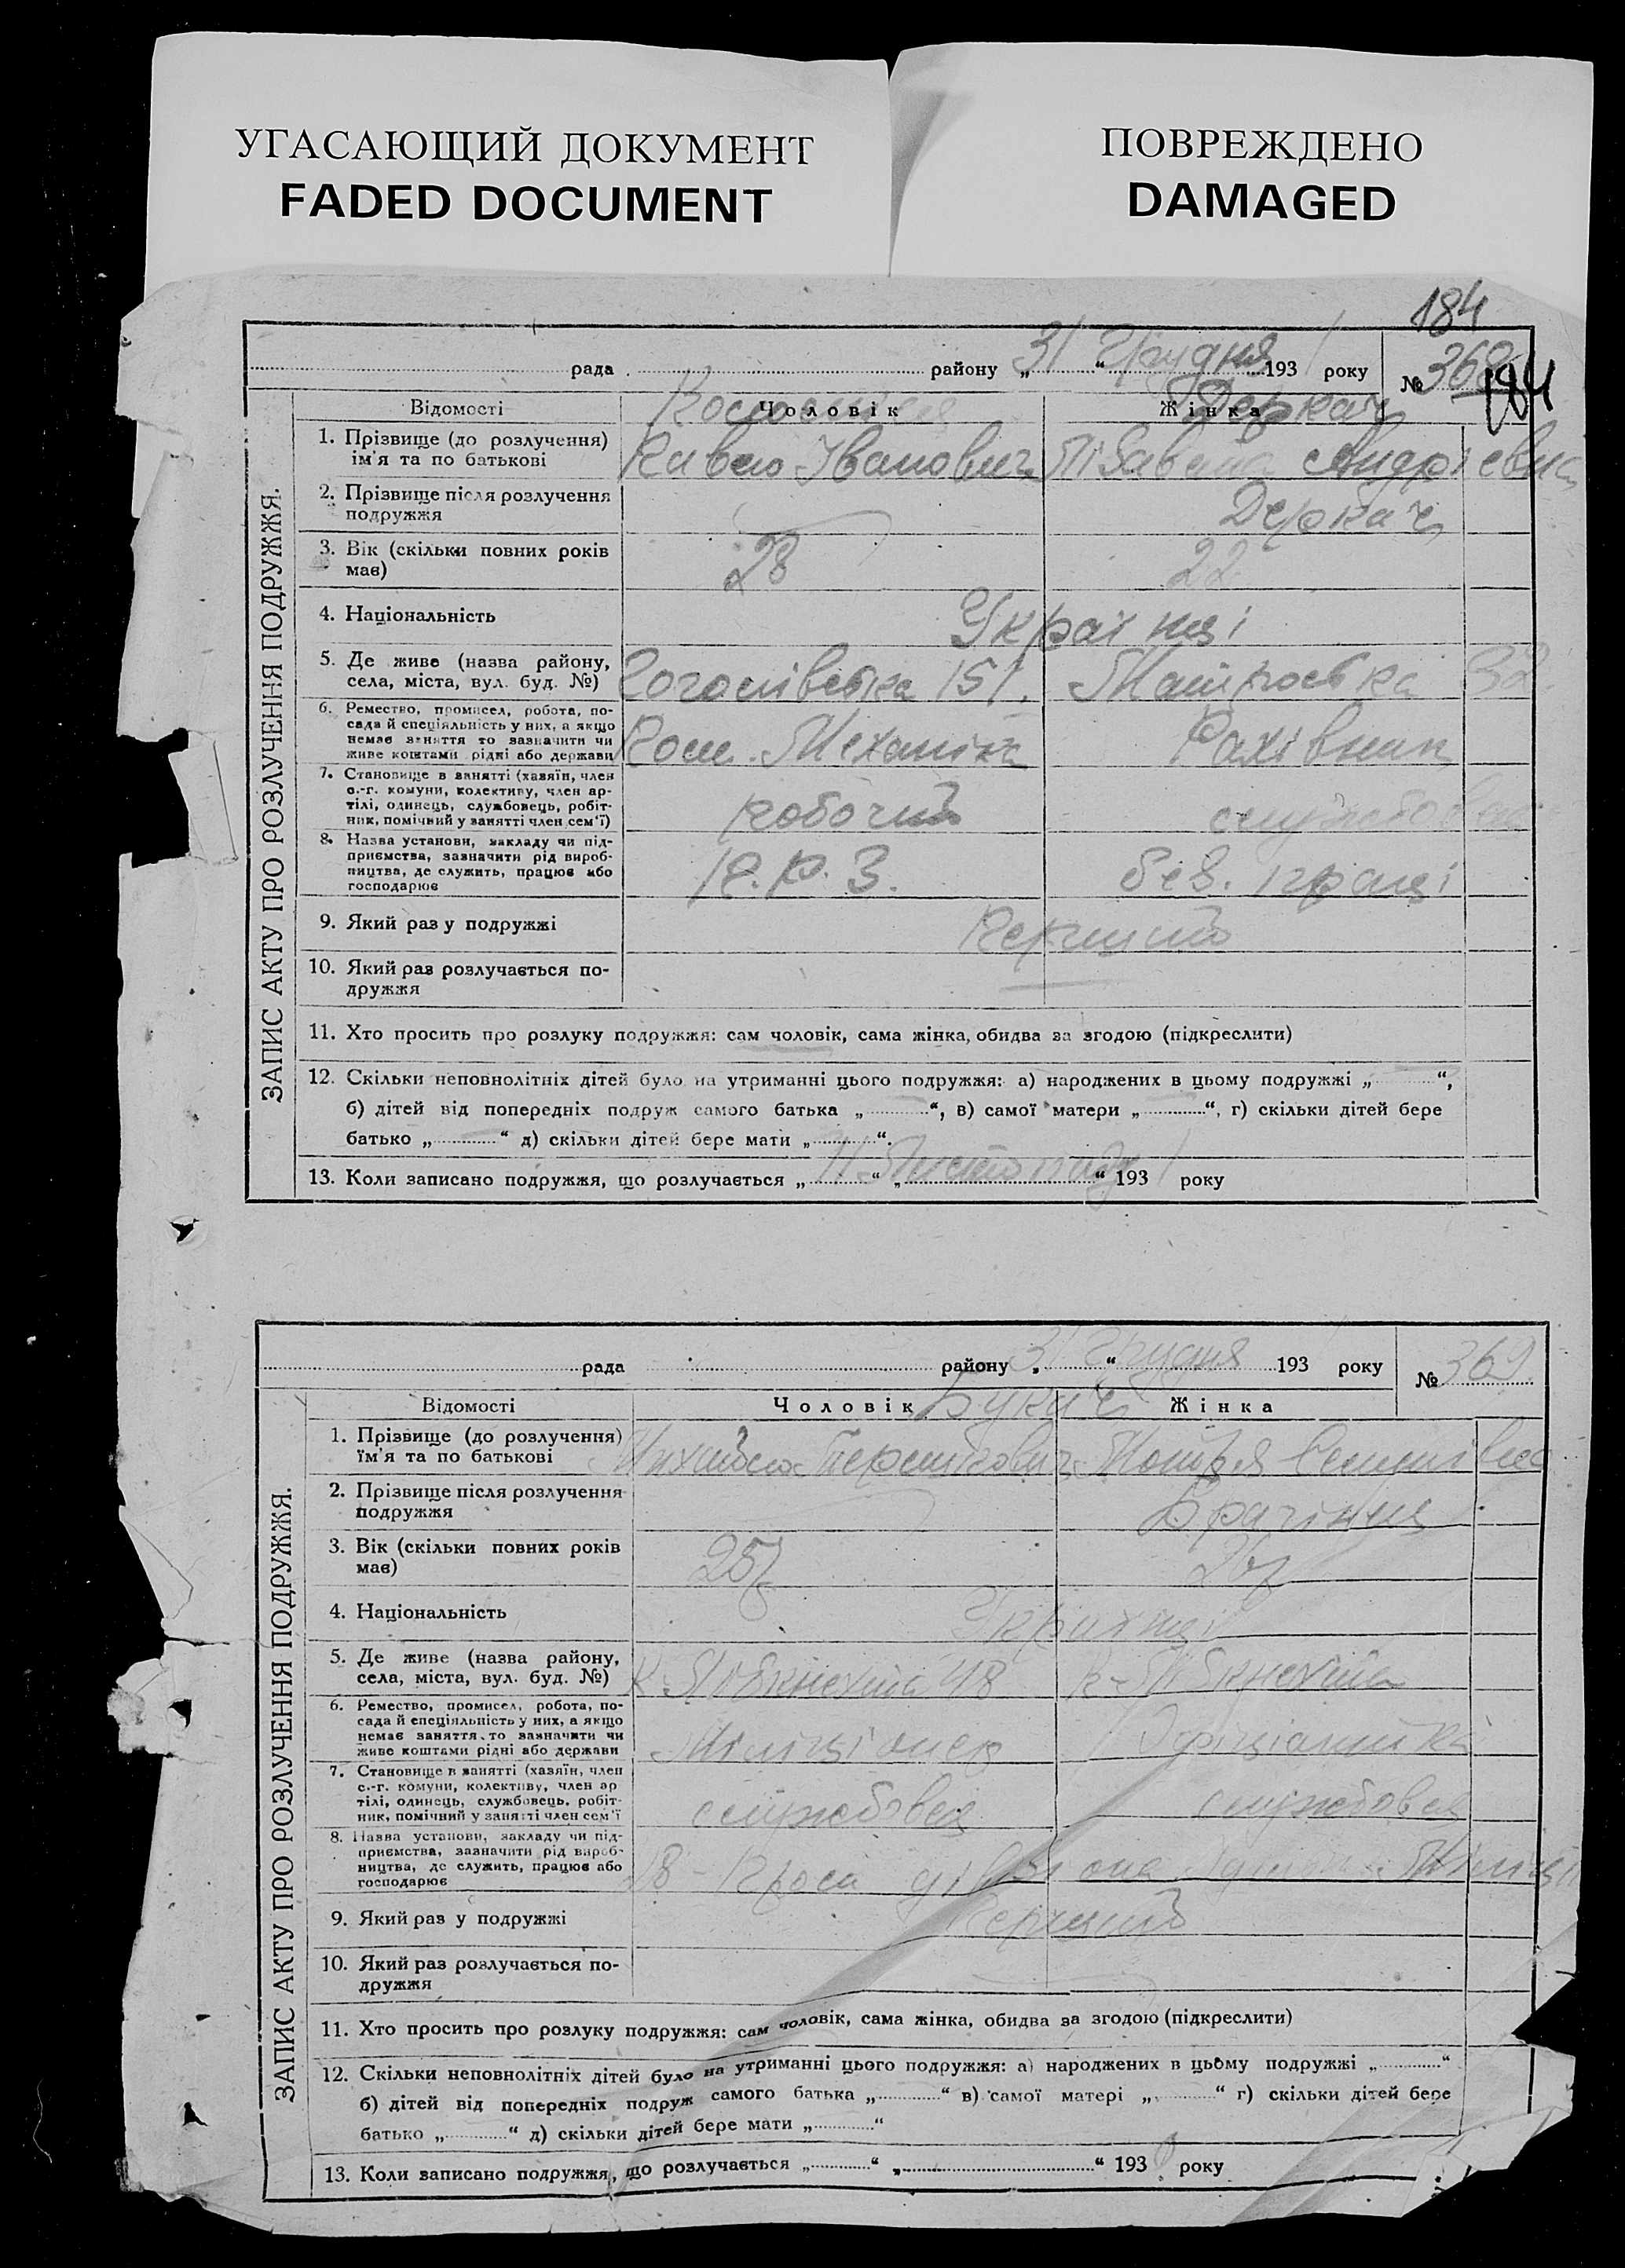 УГАСАЮЩИЙ ДОКУМЕНТ
FADED DOCUMENT
ПОВРЕЖДЕНО
DAMAGED
184
рада района району „31“ Грудня 1931 року № 368
184
ЗАПИС АКТУ ПРО РОЗЛУЧЕННЯ ПОДРУЖЖЯ.
Відомості Чоловік Жінка Деркач
1. Прізвище (до розлучення) Іванович Андріевна
ім'я та по батькові
2. Прізвище після розлучення Деркач
подружжя
3. Вік (скільки повних років 28 22
має)
4. Національність Українці
5. Де живе (назва району, 151.
села, міста, вул. буд. №)
6. Ремество, промисел, робота, по-
сада й спеціяльність у них, а якщо
немає заняття то зазначити чи
живе коштами рідні або держави Механіка Рахівник
7. Становище в занятті (хазяїн, член
с.-г. комуни, колективу, член ар-
тілі, одинець, службовець, робіт-
ник, помічний у занятті член сем'ї) робочий службовець
8. Назва установи, закладу чи під-
приємства, зазначити рід вироб-
ництва, де служить, працює або
господарює П.Р.З. без. праці
9. Який раз у подружжі Перший
10. Який раз розлучається по-
дружжя
11. Хто просить про розлуку подружжя: сам чоловік, сама жінка, обидва за згодою (підкреслити)
12. Скільки неповнолітніх дітей було на утриманні цього подружжя: а) народжених в цьому подружжі „ “,
б) дітей від попередніх подруж самого батька „ “, в) самої матери „ “, г) скільки дітей бере
батько „ “ д) скільки дітей бере мати „ “.
13. Коли записано подружжя, що розлучається „11“ „Листопаду“ 1931 року
рада району „31“ Грудня 193 року № 369
ЗАПИС АКТУ ПРО РОЗЛУЧЕННЯ ПОДРУЖЖЯ.
Відомості Чоловік Букач Жінка
1. Прізвище (до розлучення) Михайло
ім'я та по батькові
2. Прізвище після розлучення
подружжя
3. Вік (скільки повних років 25
має)
4. Національність Українці
5. Де живе (назва району, К. Лібкнехта 48 К-Лібкнехта
села, міста, вул. буд. №)
6. Ремество, промисел, робота, по-
сада й спеціяльність у них, а якщо
немає заняття, то зазначити чи
живе коштами рідні або держави Міліціонер Офіціантка
7. Становище в занятті (хазяїн, член
с.-г. комуни, колективу, член ар
тілі, одинець, службовець, робіт-
ник, помічний у занятті член сем'ї службовец службовец
8. Назва установи, закладу чи під-
приємства, зазначити рід вироб-
ництва, де служить, працює або
господарює
9. Який раз у подружжі Перший
10. Який раз розлучається по-
дружжя
11. Хто просить про розлуку подружжя: сам чоловік, сама жінка, обидва за згодою (підкреслити)
12. Скільки неповнолітніх дітей було на утриманні цього подружжя: а) народжених в цьому подружжі „ “
б) дітей від попередніх подруж самого батька „ “ в) самої матері „ “ г) скільки дітей бере
батько „ “ д) скільки дітей бере мати „ “
13. Коли записано подружжя, що розлучається „ “ „ “ 193 року